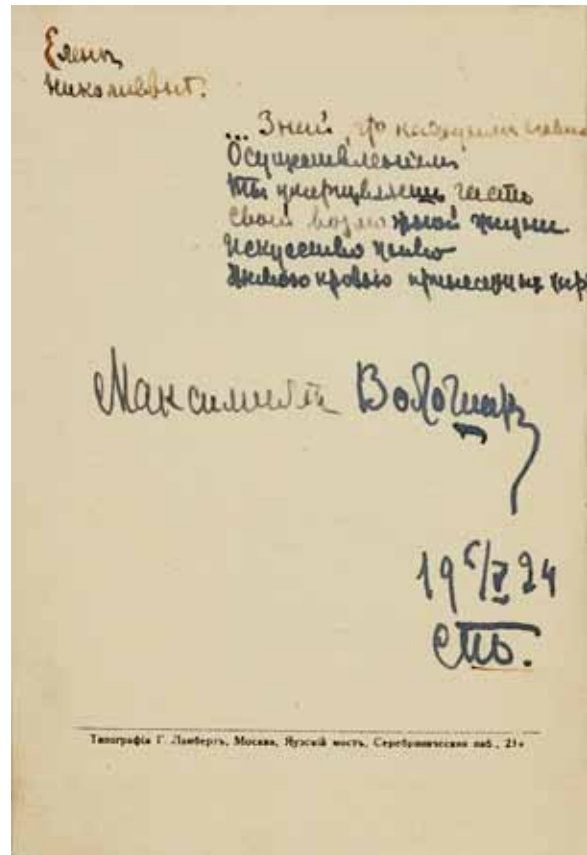 Елене
Николаевне.
... Знай, что каждым новым
Осуществлением
Ты умерщвляешь часть
Своей возможной жизни.
Искусство живо
Живою кровью принесенных
Максимилиан Волошин
19 6/V 24
СПБ.
Типографія Г. Ламбертъ, Москва, Яузскій мостъ, Серебряническая наб.,